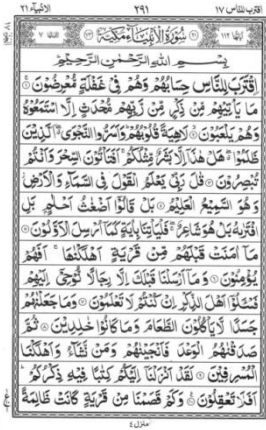 اقترب للناس ١٧ ٢٩١ الانبياء ٢١
سُوْرَةُ الْاَنْۢبِيَآءِ مَكِّيَّةٌ
بِسْمِ اللّٰهِ الرَّحْمٰنِ الرَّحِيْمِ
اِقْتَرَبَ لِلنَّاسِ حِسَابُهُمْ وَهُمْ فِيْ غَفْلَةٍ مُّعْرِضُوْنَ ۝
مَا يَاْتِيْهِمْ مِّنْ ذِكْرٍ مِّنْ رَّبِّهِمْ مُّحْدَثٍ اِلَّا اسْتَمَعُوْهُ
وَهُمْ يَلْعَبُوْنَ ۝ لَاهِيَةً قُلُوْبُهُمْ وَاَسَرُّوا النَّجْوَى الَّذِيْنَ
ظَلَمُوْا هَلْ هٰذَآ اِلَّا بَشَرٌ مِّثْلُكُمْ اَفَتَاْتُوْنَ السِّحْرَ وَاَنْتُمْ
تُبْصِرُوْنَ ۝ قٰلَ رَبِّيْ يَعْلَمُ الْقَوْلَ فِي السَّمَآءِ وَالْاَرْضِ
وَهُوَ السَّمِيْعُ الْعَلِيْمُ ۝ بَلْ قَالُوْٓا اَضْغَاثُ اَحْلَامٍۢ بَلِ
افْتَرٰىهُ بَلْ هُوَ شَاعِرٌ فَلْيَاْتِنَا بِاٰيَةٍ كَمَآ اُرْسِلَ الْاَوَّلُوْنَ ۝
مَآ اٰمَنَتْ قَبْلَهُمْ مِّنْ قَرْيَةٍ اَهْلَكْنٰهَا اَفَهُمْ
يُؤْمِنُوْنَ ۝ وَمَآ اَرْسَلْنَا قَبْلَكَ اِلَّا رِجَالًا نُّوْحِيْٓ اِلَيْهِمْ
فَسْـَٔلُوْٓا اَهْلَ الذِّكْرِ اِنْ كُنْتُمْ لَا تَعْلَمُوْنَ ۝ وَمَا جَعَلْنٰهُمْ
جَسَدًا لَّا يَاْكُلُوْنَ الطَّعَامَ وَمَا كَانُوْا خٰلِدِيْنَ ۝ ثُمَّ
صَدَقْنٰهُمُ الْوَعْدَ فَاَنْجَيْنٰهُمْ وَمَنْ نَّشَآءُ وَاَهْلَكْنَا
الْمُسْرِفِيْنَ ۝ لَقَدْ اَنْزَلْنَآ اِلَيْكُمْ كِتٰبًا فِيْهِ ذِكْرُكُمْ
اَفَلَا تَعْقِلُوْنَ ۝ وَكَمْ قَصَمْنَا مِنْ قَرْيَةٍ كَانَتْ ظَالِمَةً
منزل ٤